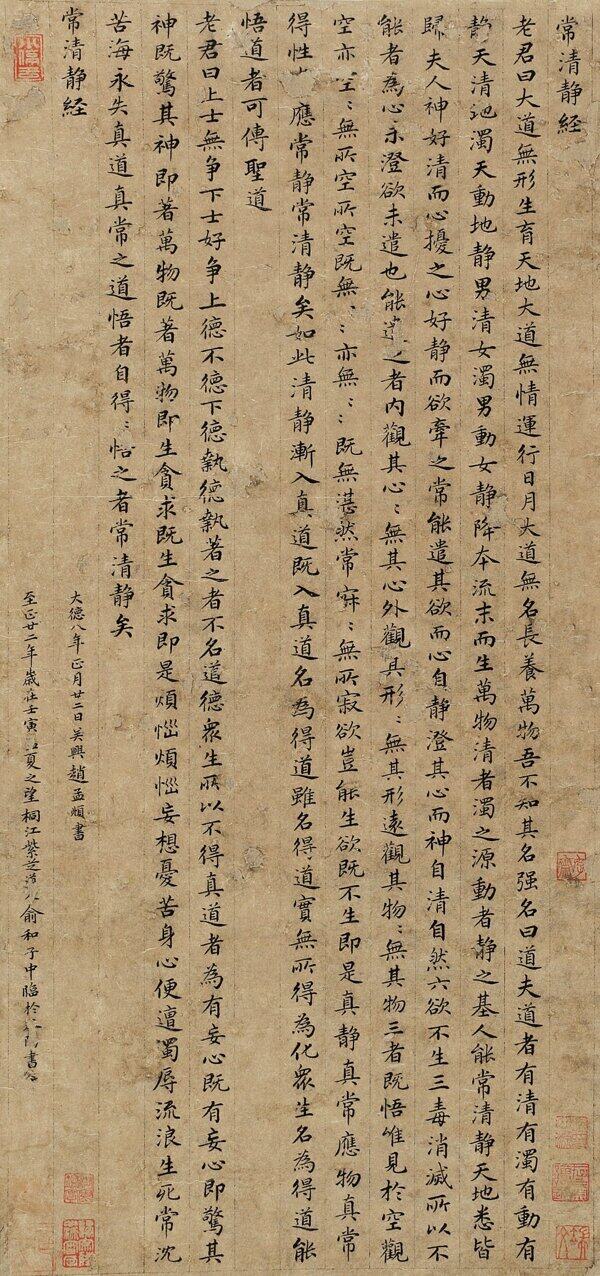 常清静経
老君曰大道無形生育天地大道無情運行日月大道無名長養萬物吾不知其名强名曰道夫道者有清有濁有動有
静天清地濁天動地静男清女濁男動女静降本流末而生萬物清者濁之源動者静之基人能常清静天地悉皆
歸夫人神好清而心擾之心好静而欲牽之常能遣其欲而心自静澄其心而神自清自然六欲不生三毒消滅所以不
能者為心未澄欲未遣也能遣之者内觀其心〻無其心外觀其形〻無其形遠觀其物〻無其物三者既悟唯見於空觀
空亦空〻無所空所空既無〻〻亦無〻〻既無湛然常寂〻無所寂欲豈能生欲既不生即是真静真常應物真常
得性應常静常清静矣如此清静漸入真道既入真道名為得道雖名得道實無所得為化衆生名為得道能
悟道者可傳聖道
老君曰上士無争下士好争上德不德下德執德執著之者不名道德衆生所以不得真道者為有妄心既有妄心即驚其
神既驚其神即著萬物既著萬物即生貪求既生貪求即是煩惱煩惱妄想憂苦身心便遭濁辱流浪生死常沈
苦海永失真道真常之道悟者自得〻悟之者常清静矣
常清静経
大德八年正月廿二日吴興趙孟頫書
至正廿二年歲在壬寅夏之望桐江紫芝俞和子中臨於書